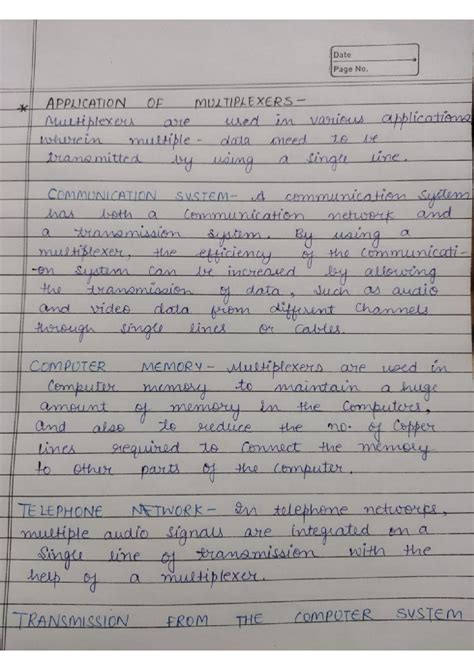 Date
Page No.
* APPLICATION OF MULTIPLEXERS-
Multiplexers are used in various applications
wherein multiple - data need to be
transmitted by using a single line.
COMMUNICATION SYSTEM- A communication System
has both a communication network and
a transmission system. By using a
multiplexer, the efficiency of the communicati-
-on system can be increased by allowing
the transmission of data, such as audio
and video data from different channels
through single lines or cables.
COMPUTER MEMORY- Multiplexers are used in
Computer memory to maintain a huge
amount of memory in the computers,
and also to reduce the no. of copper
lines required to connect the memory
to other parts of the computer.
TELEPHONE NETWORK- In telephone networks,
multiple audio signals are integrated on a
single line of transmission with the
help of a multiplexer.
TRANSMISSION FROM THE COMPUTER SYSTEM